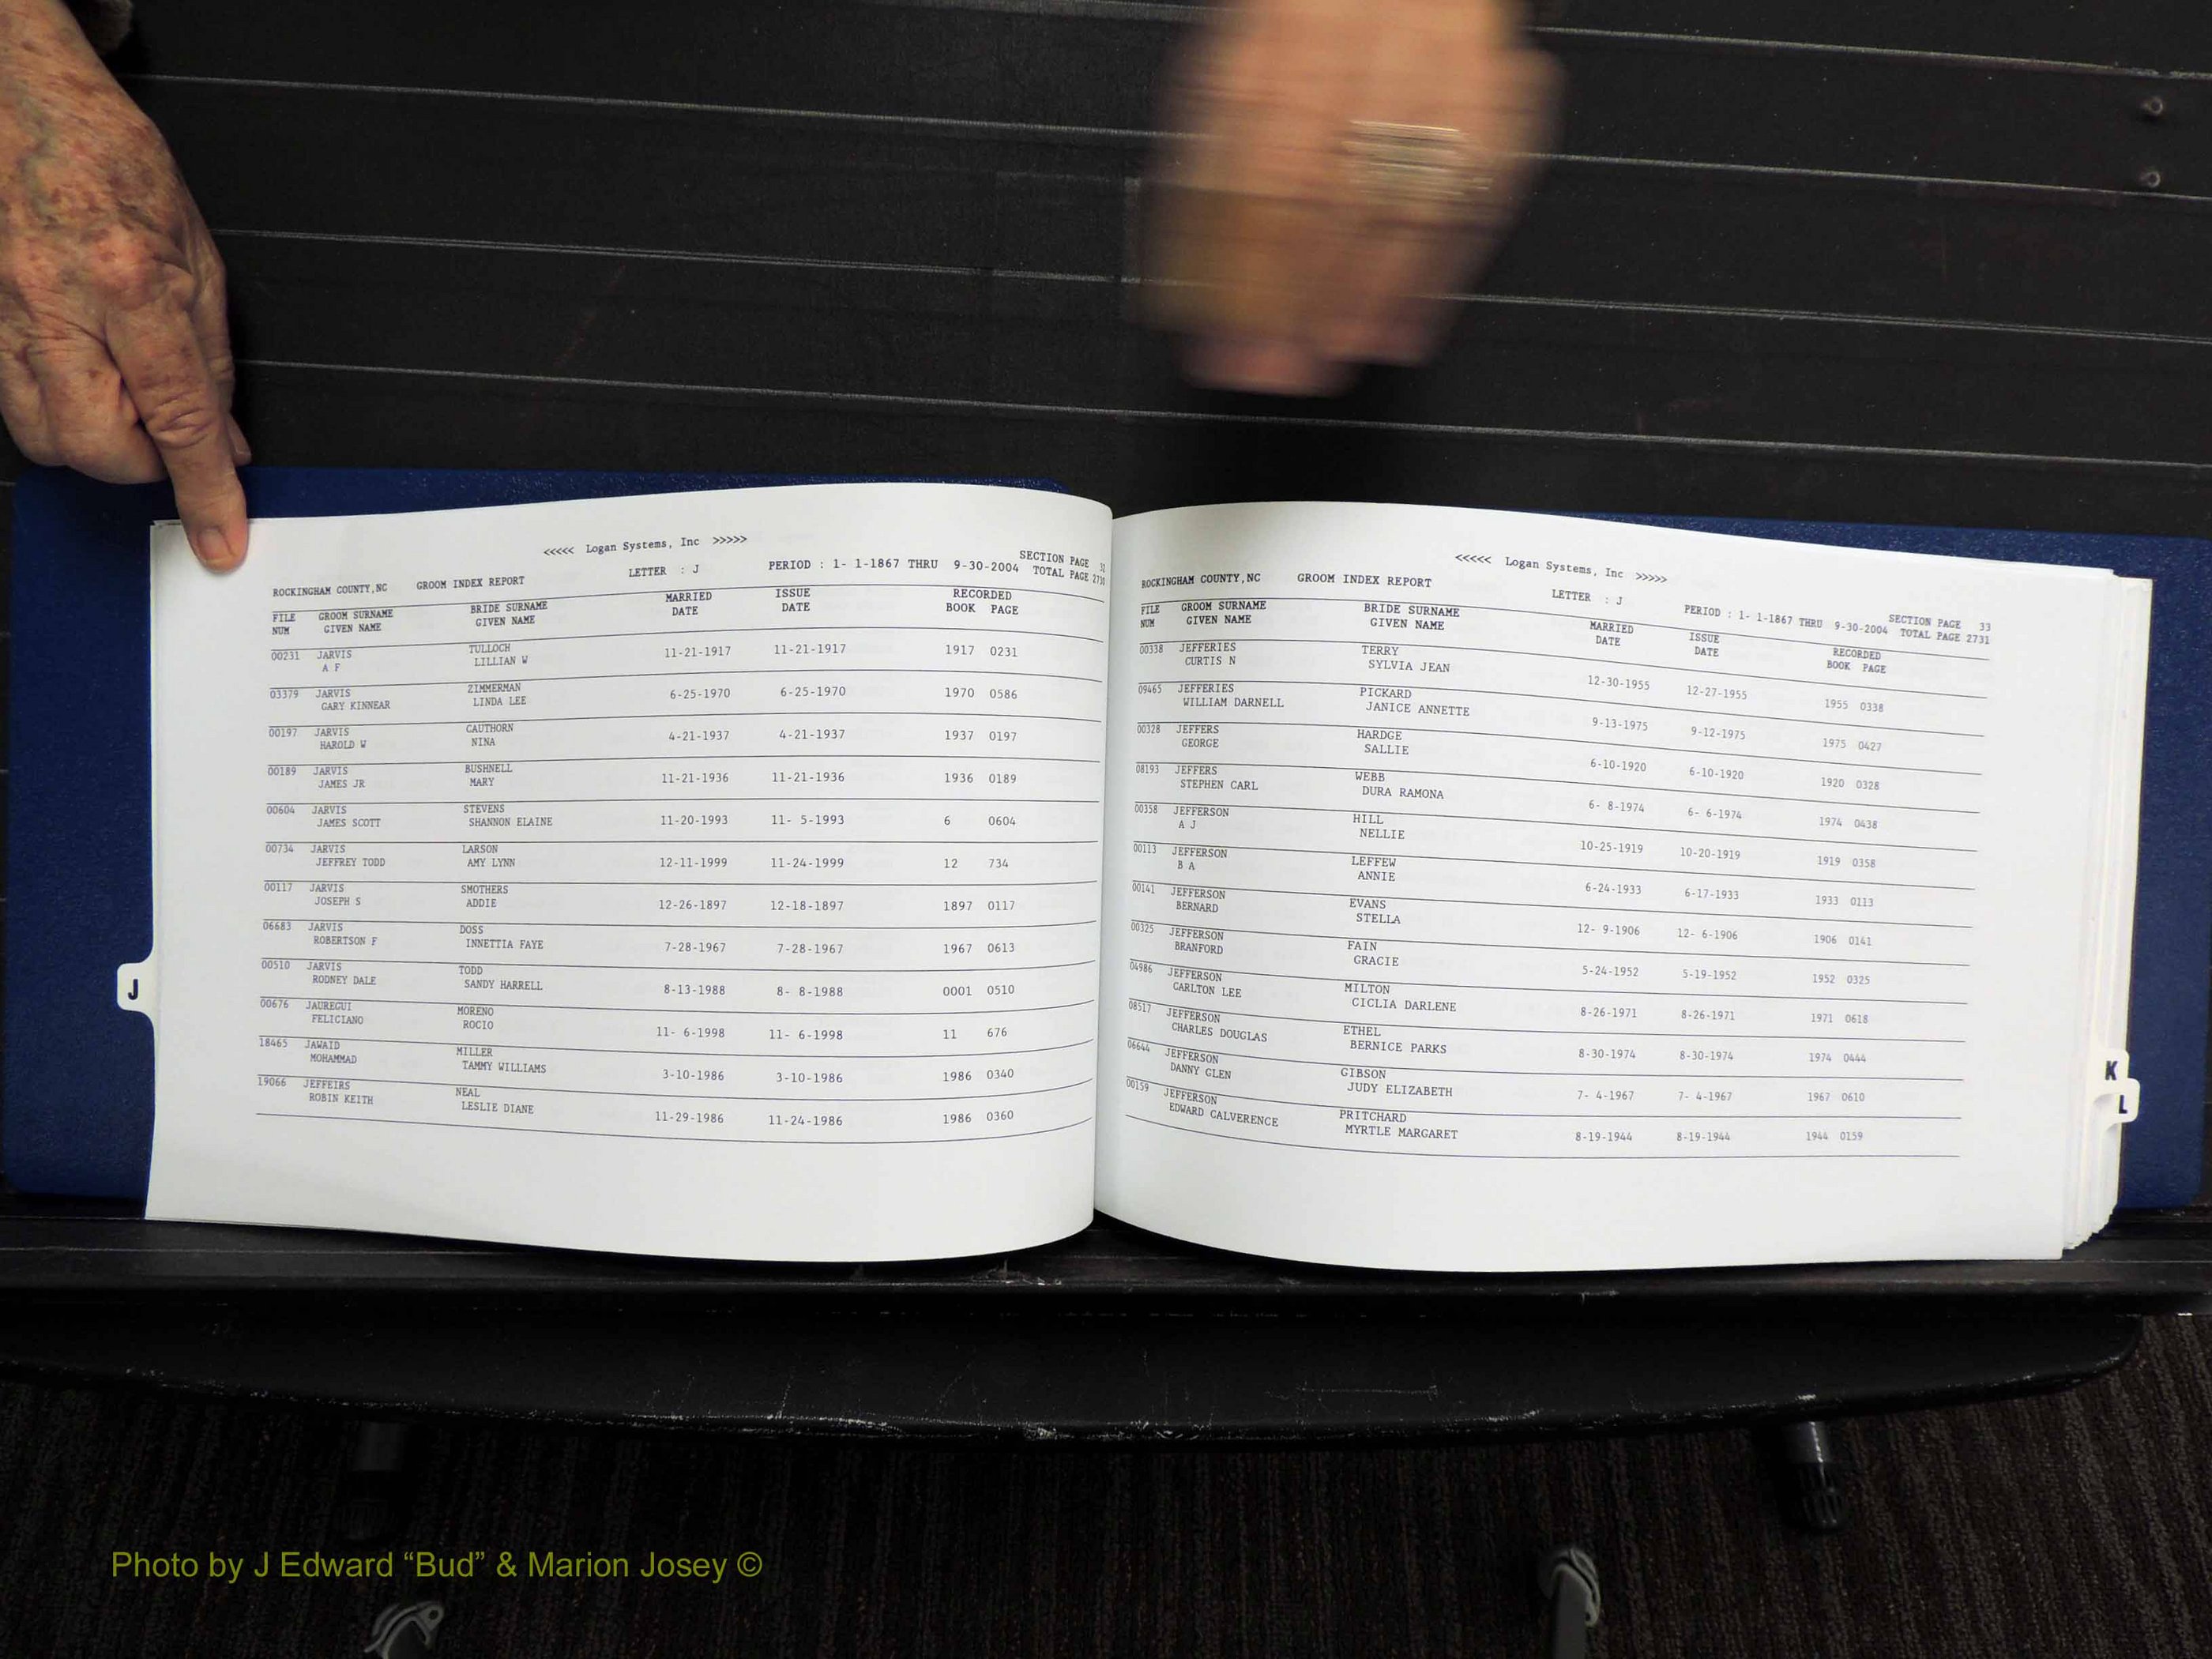 <<<<< Logan Systems, Inc >>>>>
SECTION PAGE 32
ROCKINGHAM COUNTY,NC GROOM INDEX REPORT LETTER : J PERIOD : 1- 1-1867 THRU 9-30-2004 TOTAL PAGE 2730
FILE GROOM SURNAME BRIDE SURNAME MARRIED ISSUE RECORDED
NUM GIVEN NAME GIVEN NAME DATE DATE BOOK PAGE
00231 JARVIS TULLOCH 11-21-1917 11-21-1917 1917 0231
A F LILLIAN W
03379 JARVIS ZIMMERMAN 6-25-1970 6-25-1970 1970 0586
GARY KINNEAR LINDA LEE
00197 JARVIS CAUTHORN 4-21-1937 4-21-1937 1937 0197
HAROLD W NINA
00189 JARVIS BUSHNELL 11-21-1936 11-21-1936 1936 0189
JAMES JR MARY
00604 JARVIS STEVENS 11-20-1993 11- 5-1993 6 0604
JAMES SCOTT SHANNON ELAINE
00734 JARVIS LARSON 12-11-1999 11-24-1999 12 734
JEFFREY TODD AMY LYNN
00117 JARVIS SMOTHERS 12-26-1897 12-18-1897 1897 0117
JOSEPH S ADDIE
06683 JARVIS DOSS 7-28-1967 7-28-1967 1967 0613
ROBERTSON F INNETTIA FAYE
00510 JARVIS TODD 8-13-1988 8- 8-1988 0001 0510
RODNEY DALE SANDY HARRELL
00676 JAUREGUI MORENO 11- 6-1998 11- 6-1998 11 676
FELICIANO ROCIO
18465 JAWAID MILLER 3-10-1986 3-10-1986 1986 0340
MOHAMMAD TAMMY WILLIAMS
19066 JEFFEIRS NEAL 11-29-1986 11-24-1986 1986 0360
ROBIN KEITH LESLIE DIANE
J
<<<<< Logan Systems, Inc >>>>>
SECTION PAGE 33
ROCKINGHAM COUNTY,NC GROOM INDEX REPORT LETTER : J PERIOD : 1- 1-1867 THRU 9-30-2004 TOTAL PAGE 2731
FILE GROOM SURNAME BRIDE SURNAME MARRIED ISSUE RECORDED
NUM GIVEN NAME GIVEN NAME DATE DATE BOOK PAGE
00338 JEFFERIES TERRY 12-30-1955 12-27-1955 1955 0338
CURTIS N SYLVIA JEAN
09465 JEFFERIES PICKARD 9-13-1975 9-12-1975 1975 0427
WILLIAM DARNELL JANICE ANNETTE
00328 JEFFERS HARDGE 6-10-1920 6-10-1920 1920 0328
GEORGE SALLIE
08193 JEFFERS WEBB 6- 8-1974 6- 6-1974 1974 0438
STEPHEN CARL DURA RAMONA
00358 JEFFERSON HILL 10-25-1919 10-20-1919 1919 0358
A J NELLIE
00113 JEFFERSON LEFFEW 6-24-1933 6-17-1933 1933 0113
B A ANNIE
00141 JEFFERSON EVANS 12- 9-1906 12- 6-1906 1906 0141
BERNARD STELLA
00325 JEFFERSON FAIN 5-24-1952 5-19-1952 1952 0325
BRANFORD GRACIE
04986 JEFFERSON MILTON 8-26-1971 8-26-1971 1971 0618
CARLTON LEE CICLIA DARLENE
08517 JEFFERSON ETHEL 8-30-1974 8-30-1974 1974 0444
CHARLES DOUGLAS BERNICE PARKS
06644 JEFFERSON GIBSON 7- 4-1967 7- 4-1967 1967 0610
DANNY GLEN JUDY ELIZABETH
00159 JEFFERSON PRITCHARD 8-19-1944 8-19-1944 1944 0159
EDWARD CALVERENCE MYRTLE MARGARET
K
L
Photo by J Edward “Bud” & Marion Josey ©